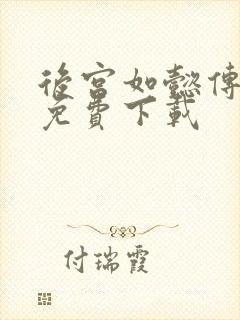 後宮如懿傳
免費下載
付瑞霞